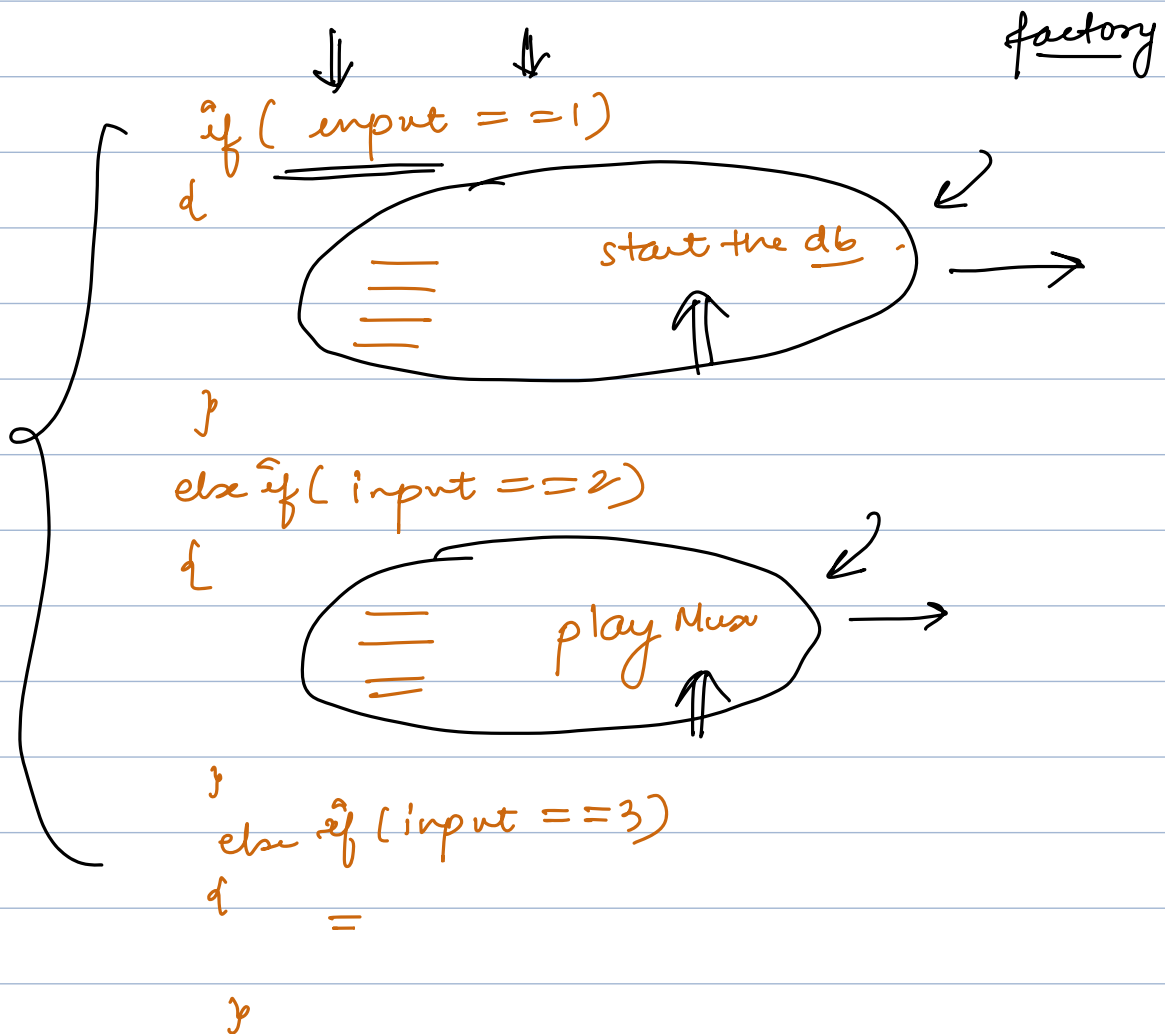 factory
if ( input = = 1 )
{
start the db .
}
else if ( input == 2 )
{
play
}
else if ( input == 3 )
{
=
}